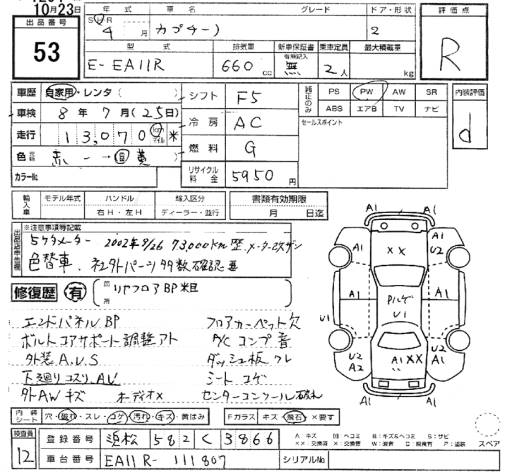 10月23日
年 車名 グレード ドア・形状 評価点
出品番号
S H R 4月 カプチーノ 2
53
型式 排気量 新車保証書 乗車定員 最大積載量
有無記入
E-EA11R 660 cc 無 2人 kg
R
車歴 自家用・レンタ( ) シフト F5 純正のみ PS PW AW SR 内装評価
車検 8年 7月(25日) ABS エアB TV ナビ
冷房 AC セールスポイント
走行 13,070 km マイル
燃料 G
色 赤 → 黄 d
カラーNo. リサイクル料金 5950円
輸入車 モデル年式 ハンドル 輸入区分 書類有効期限
年 右H・左H ディーラー・並行 月 日迄
※注意事項等記載
5ケタメーター 2002年9/26 73,000km歴 メーター改ザン
色替車. 社外パーツ多数確認要
修復歴 有 箇所 リヤフロアBP 来目
エンドパネルBP フロアカーペット欠
ボルトコアサポート調整アト A/Cコンプ音
外装A.U.S ダッシュ板ワレ
下廻りコスリ.AU シートコゲ
外AWキズ オーディオ× センターコンソール破れ
内装 シート 穴・破れ・スレ・コゲ・汚れ・キズ・黄ばみ Fガラス キズ・飛石・×要す
検査員 登録番号 浜松 582 く 3866
スペア
12 車台番号 EA11R-111807 シリアルNo.
A1 A1
×× A1 U2
A1 A1
Pハゲ
U1
U1
U2 U2 A1
U2 A2 A1××
A1 A1